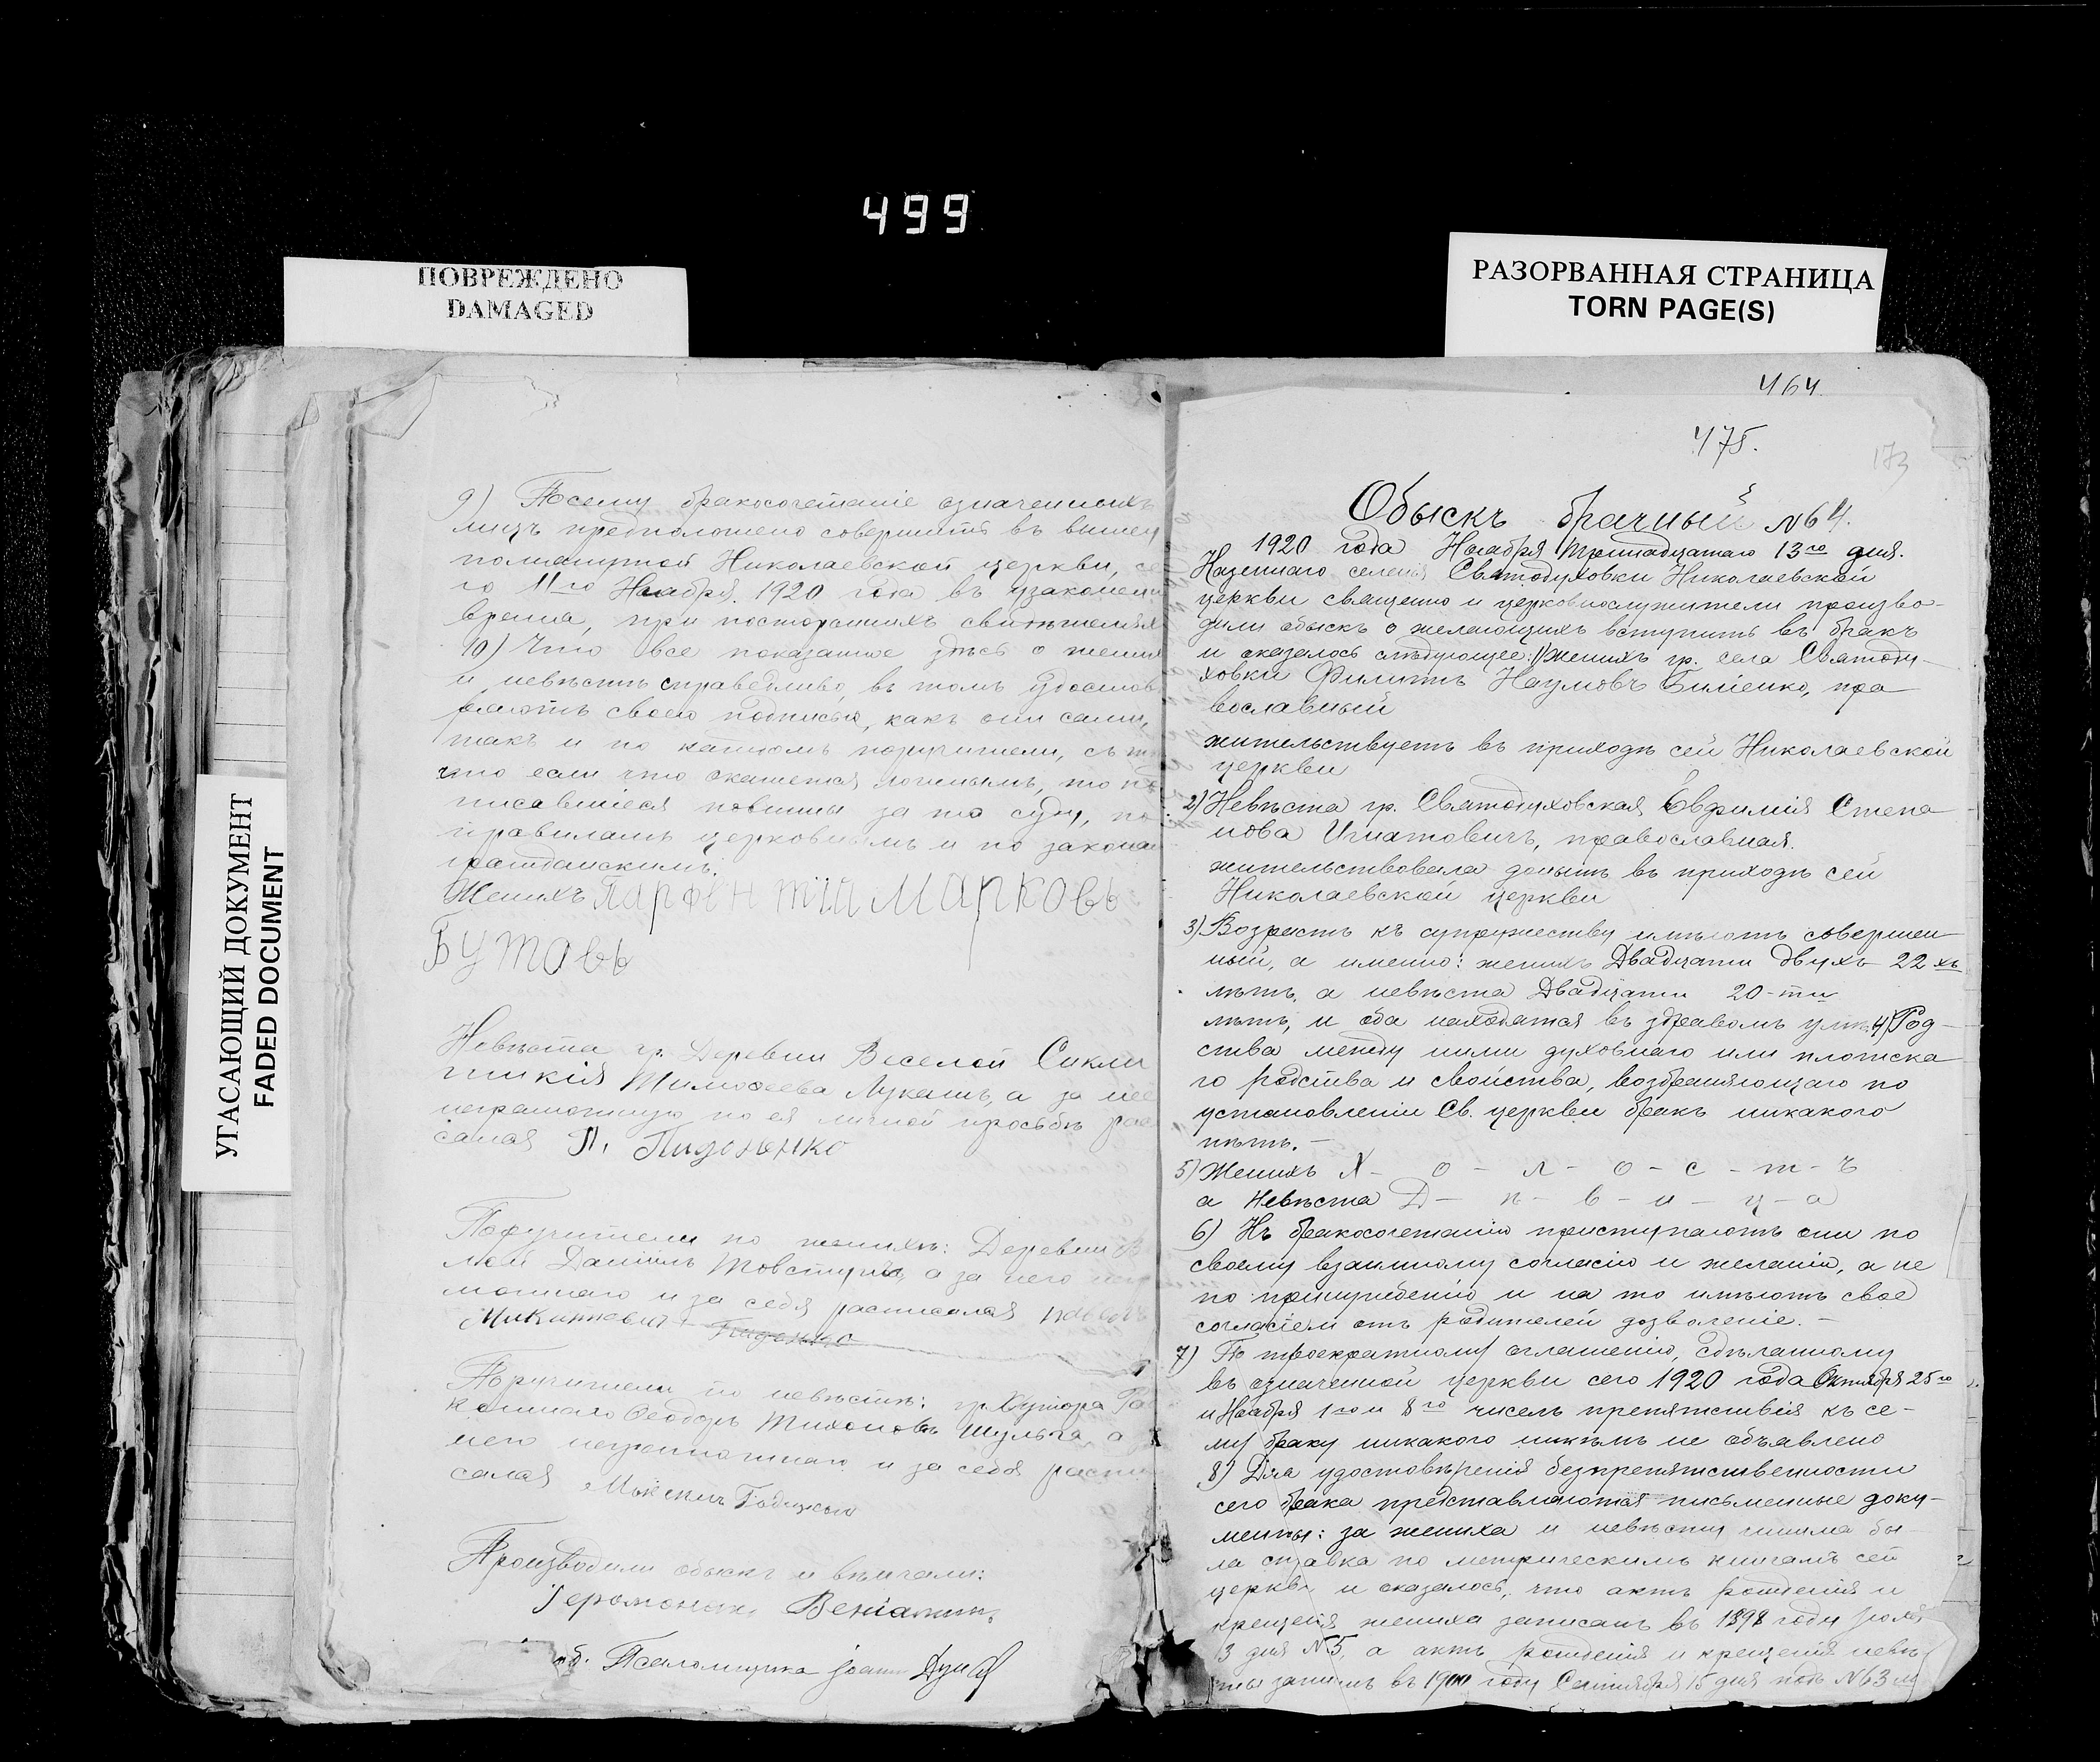 499
ПОВРЕЖДЕНО
DAMAGED
РАЗОРВАННАЯ СТРАНИЦА
TORN PAGE(S)
УГАСАЮЩИЙ ДОКУМЕНТ
FADED DOCUMENT
9) Посему бракосочетаніе означенныхъ
лицъ предположено совершить въ вышеу
помянутой Николаевской церкви, се
го 11го Ноября 1920 года въ узаконен
время, при постороннихъ свидѣтеляхъ
10) Что все показанное здѣсь о жених
и невѣстѣ справедливо, въ томъ удостов
ряютъ своею подписью, какъ они сами,
такъ и по каждомъ поручители, съ т
что если что окажется ложнымъ, то по
писавшіеся повинны за то суду, по
правиламъ церковнымъ и по закона
гражданскимъ.
Женихъ Парфентій Марковъ
Бутовъ
Невѣста гр. Деревни Веселой Сикли
тикія Тимофеева Лукашъ, а за нее
неграмотную по ея личной просьбѣ рас
салая П.
Поручители по женихѣ: Деревни В
лой Даніилъ а за него негр
мотнаго и за себя расписался
Поручители по невѣстѣ: гр. Хутора
Ѳеодоръ Тихоновъ Шульга а з
него неграмотнаго и за себя распи
сался
Производили обыскъ и вѣнчали:
Іеромонахъ Веніаминъ,
Псаломщика Іоаннъ
464.
475.
173
Обыскъ брачный №64.
1920 года Ноября тринадцатаго 13го дня.
Казеннаго селенія Святодуховки Николаевской
церкви священно и церковнослужители произво-
дили обыскъ о желающихъ вступить въ бракъ
и оказалось слѣдующее: 1) Женихъ гр. села Святоду-
ховки Филиппъ Наумовъ Биліенко, пра
вославный
жительствуетъ въ приходѣ сей Николаевской
церкви
2) Невѣста гр. Святодуховская Евфимія Степа
нова Игнатовичъ, православная.
жительствовала донынѣ въ приходѣ сей
Николаевской церкви
3) Возрастъ къ супружеству имѣютъ совершен
ный, а именно: женихъ Двадцати двухъ 22хъ
лѣтъ, а невѣста Двадцати 20-ти
лѣтъ, и оба находятся въ здравомъ умѣ. 4) Род-
ства между ними духовнаго или плотска
го родства и свойства, возбраняющаго по
установленію Св. церкви бракъ никакого
нѣтъ. –
5) Женихъ Х - о - л - о - с - т - ъ
а невѣста Д - ѣ - в - и - ц - а
6) Къ бракосочетанію приступаютъ они по
своему взаимному согласію и желанію, а не
по принужденію и на то имѣютъ свое
согласіе и отъ родителей дозволеніе. –
7) По троекратному оглашенію, сдѣланному
въ означенной церкви сего 1920 года Октября 25го
и Ноября 1го и 8го чиселъ препятствія къ се-
му браку никакого никѣмъ не объявлено
8) Для удостовѣренія безпрепятственности
сего брака представляются письменные доку-
менты: за жениха и невѣсту чинима бы
ла справка по метрическимъ книгамъ сей
церкви и оказалось, что актъ рожденія и
крещенія жениха записанъ въ 1898 году Іюля
3 дня №5, а актъ рожденія и крещенія невѣ
сты записанъ въ 1900 году Сентября 15 дня подъ №63